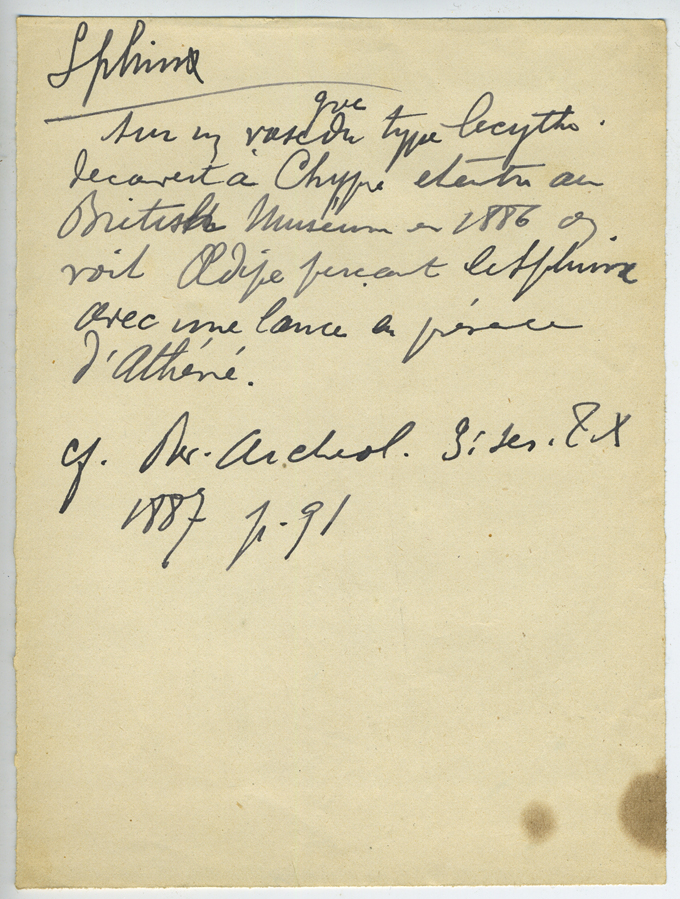 Sphinx
grec
sur un vase du type lecythe.
decouvert à Chypre et entré au
British Museum en 1886 on
voit Œdipe perçant le Sphinx
avec une lance en présence
d'Athéné.
cf. Rev. Archeol. 3e ser. T. X
1887 p. 91